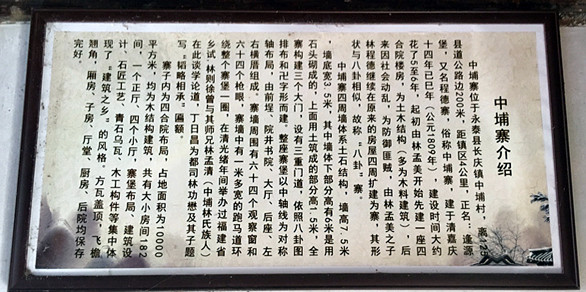 中埔寨介绍
中埔寨位于永泰县长庆镇中埔村，离125
县道公路边200米，距镇区4公里，正名：逢源
堡，又名程德寨，俗称中埔寨，建于清嘉庆
十四年已巳年（公元1809年），建设时间大约
花了5至6年，起初由林孟美开始先建一座四
合院楼房，为土木结构（多为木料建筑），后
来因社会动乱，为防御匪贼，由林孟美之子
林程德继续在原来的房屋四周扩建为寨，其形
状与八卦相似，故称“八卦”寨。
中埔寨四周墙体系土石结构，墙高7.5米
，墙底宽3.5米，其中墙体下部分高有6米是用
石头砌成的，上面用土筑成的部分高1.5米，全
寨构建三个大门，设有三重门道，依照八卦图
排布和卍字形而建，整座寨堡以中轴线为对称
轴布局，由前埕、院井书院、大厅、后座、左
右横厝组成。寨墙周围有六十四个观察窗和
六十四个枪眼，寨墙中有一米多宽的跑马道环
绕整个寨堡一圈，在清光绪年间举办过福建省
乡试，林则徐曾与其师兄林孟清（中埔林氏族人）
在此谈学论道，丁日昌为都司林功懋及其子题
写“韬略相承”匾额。
寨子内为四合院布局，占地面积为10000
平方米，均为木结构建筑，共有大小房间182
间，一个正厅，四个小厅，寨堡布局、建筑设
计、石匠工艺、青石乌瓦、木工构件等集中体
现了“建筑之乡”的风格，方瓦盖顶，飞檐
翘角，厢房、子房、厅堂、厨房、后院均保存
完好。